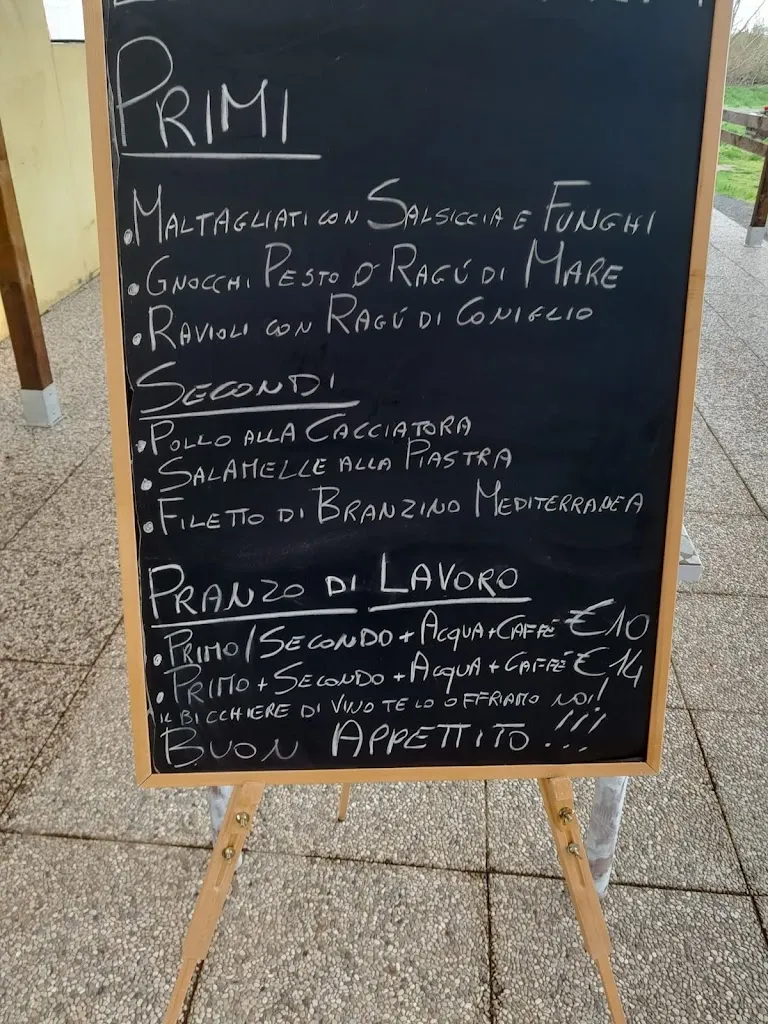 PRIMI
• MALTAGLIATI CON SALSICCIA E FUNGHI
• GNOCCHI PESTO O RAGÚ DI MARE
• RAVIOLI CON RAGÚ DI CONIGLIO
SECONDI
• POLLO ALLA CACCIATORA
• SALAMELLE ALLA PIASTRA
• FILETTO DI BRANZINO MEDITERRANEA
PRANZO DI LAVORO
• PRIMO/SECONDO + ACQUA + CAFFÉ €10
• PRIMO + SECONDO + ACQUA + CAFFÉ €14
IL BICCHIERE DI VINO TE LO OFFRIAMO NOI!
BUON APPETTITO!!!